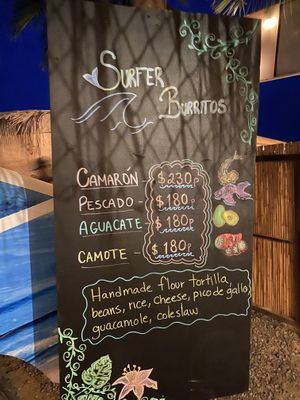 SURFER
BURRITOS
CAMARÓN - $230P
PESCADO - $180P
AGUACATE - $180P
CAMOTE - $180P
Handmade flour tortilla,
beans, rice, cheese, pico de gallo,
guacamole, coleslaw